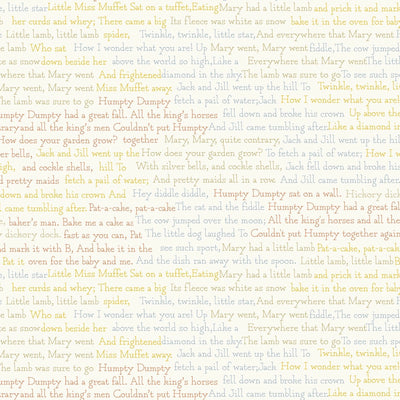 , little star Little Miss Muffet Sat on a tuffet, Eating Mary had a little lamb and prick it and mark
her curds and whey; There came a big Its fleece was white as snow bake it in the oven for baby
Little lamb, little lamb spider, Twinkle, twinkle, little star, And everywhere that Mary went
le lamb Who sat How I wonder what you are! Up Mary went, Mary went fiddle, The cow jumped
te as snow down beside her above the world so high, Like a Everywhere that Mary went The litt
where that Mary went And frightened diamond in the sky. The lamb was sure to go To see such spo
Mary went, Mary went Miss Muffet away. Jack and Jill went up the hill To Twinkle, twinkle, li
he lamb was sure to go Humpty Dumpty fetch a pail of water; Jack How I wonder what you are!
umpty Dumpty had a great fall. All the king's horses fell down and broke his crown Up above the
rary and all the king's men Couldn't put Humpty And Jill came tumbling after. Like a diamond in
How does your garden grow? together Mary, Mary, quite contrary, Jack and Jill went up the hill
er bells, Jack and Jill went up the How does your garden grow? To fetch a pail of water; How I w
igh, and cockle shells, hill To With silver bells, and cockle shells, Jack fell down and broke his
d pretty maids fetch a pail of water; And pretty maids all in a row. And Jill came tumbling after.
down and broke his crown And Hey diddle diddle, Humpty Dumpty sat on a wall. Hickory dick
came tumbling after. Pat-a-cake, pat-a-cake The cat and the fiddle Humpty Dumpty had a great fal
baker's man. Bake me a cake as The cow jumped over the moon; All the king's horses and all the
y dickory dock. fast as you can, Pat The little dog laughed To Couldn't put Humpty together again
nd mark it with B, And bake it in the see such sport, Mary had a little lamb Pat-a-cake, pat-a-cak
Pat it oven for the baby and me. And the dish ran away with the spoon. Little lamb, little lamb B
, little star Little Miss Muffet Sat on a tuffet, Eating Mary had a little lamb and prick it and mark
her curds and whey; There came a big Its fleece was white as snow bake it in the oven for baby
Little lamb, little lamb spider, Twinkle, twinkle, little star, And everywhere that Mary went
le lamb Who sat How I wonder what you are! Up Mary went, Mary went fiddle, The cow jumped
te as snow down beside her above the world so high, Like a Everywhere that Mary went The litt
where that Mary went And frightened diamond in the sky. The lamb was sure to go To see such spo
Mary went, Mary went Miss Muffet away. Jack and Jill went up the hill To Twinkle, twinkle, li
he lamb was sure to go Humpty Dumpty fetch a pail of water; Jack How I wonder what you are!
umpty Dumpty had a great fall. All the king's horses fell down and broke his crown Up above the
rary and all the king's men Couldn't put Humpty And Jill came tumbling after. Like a diamond in